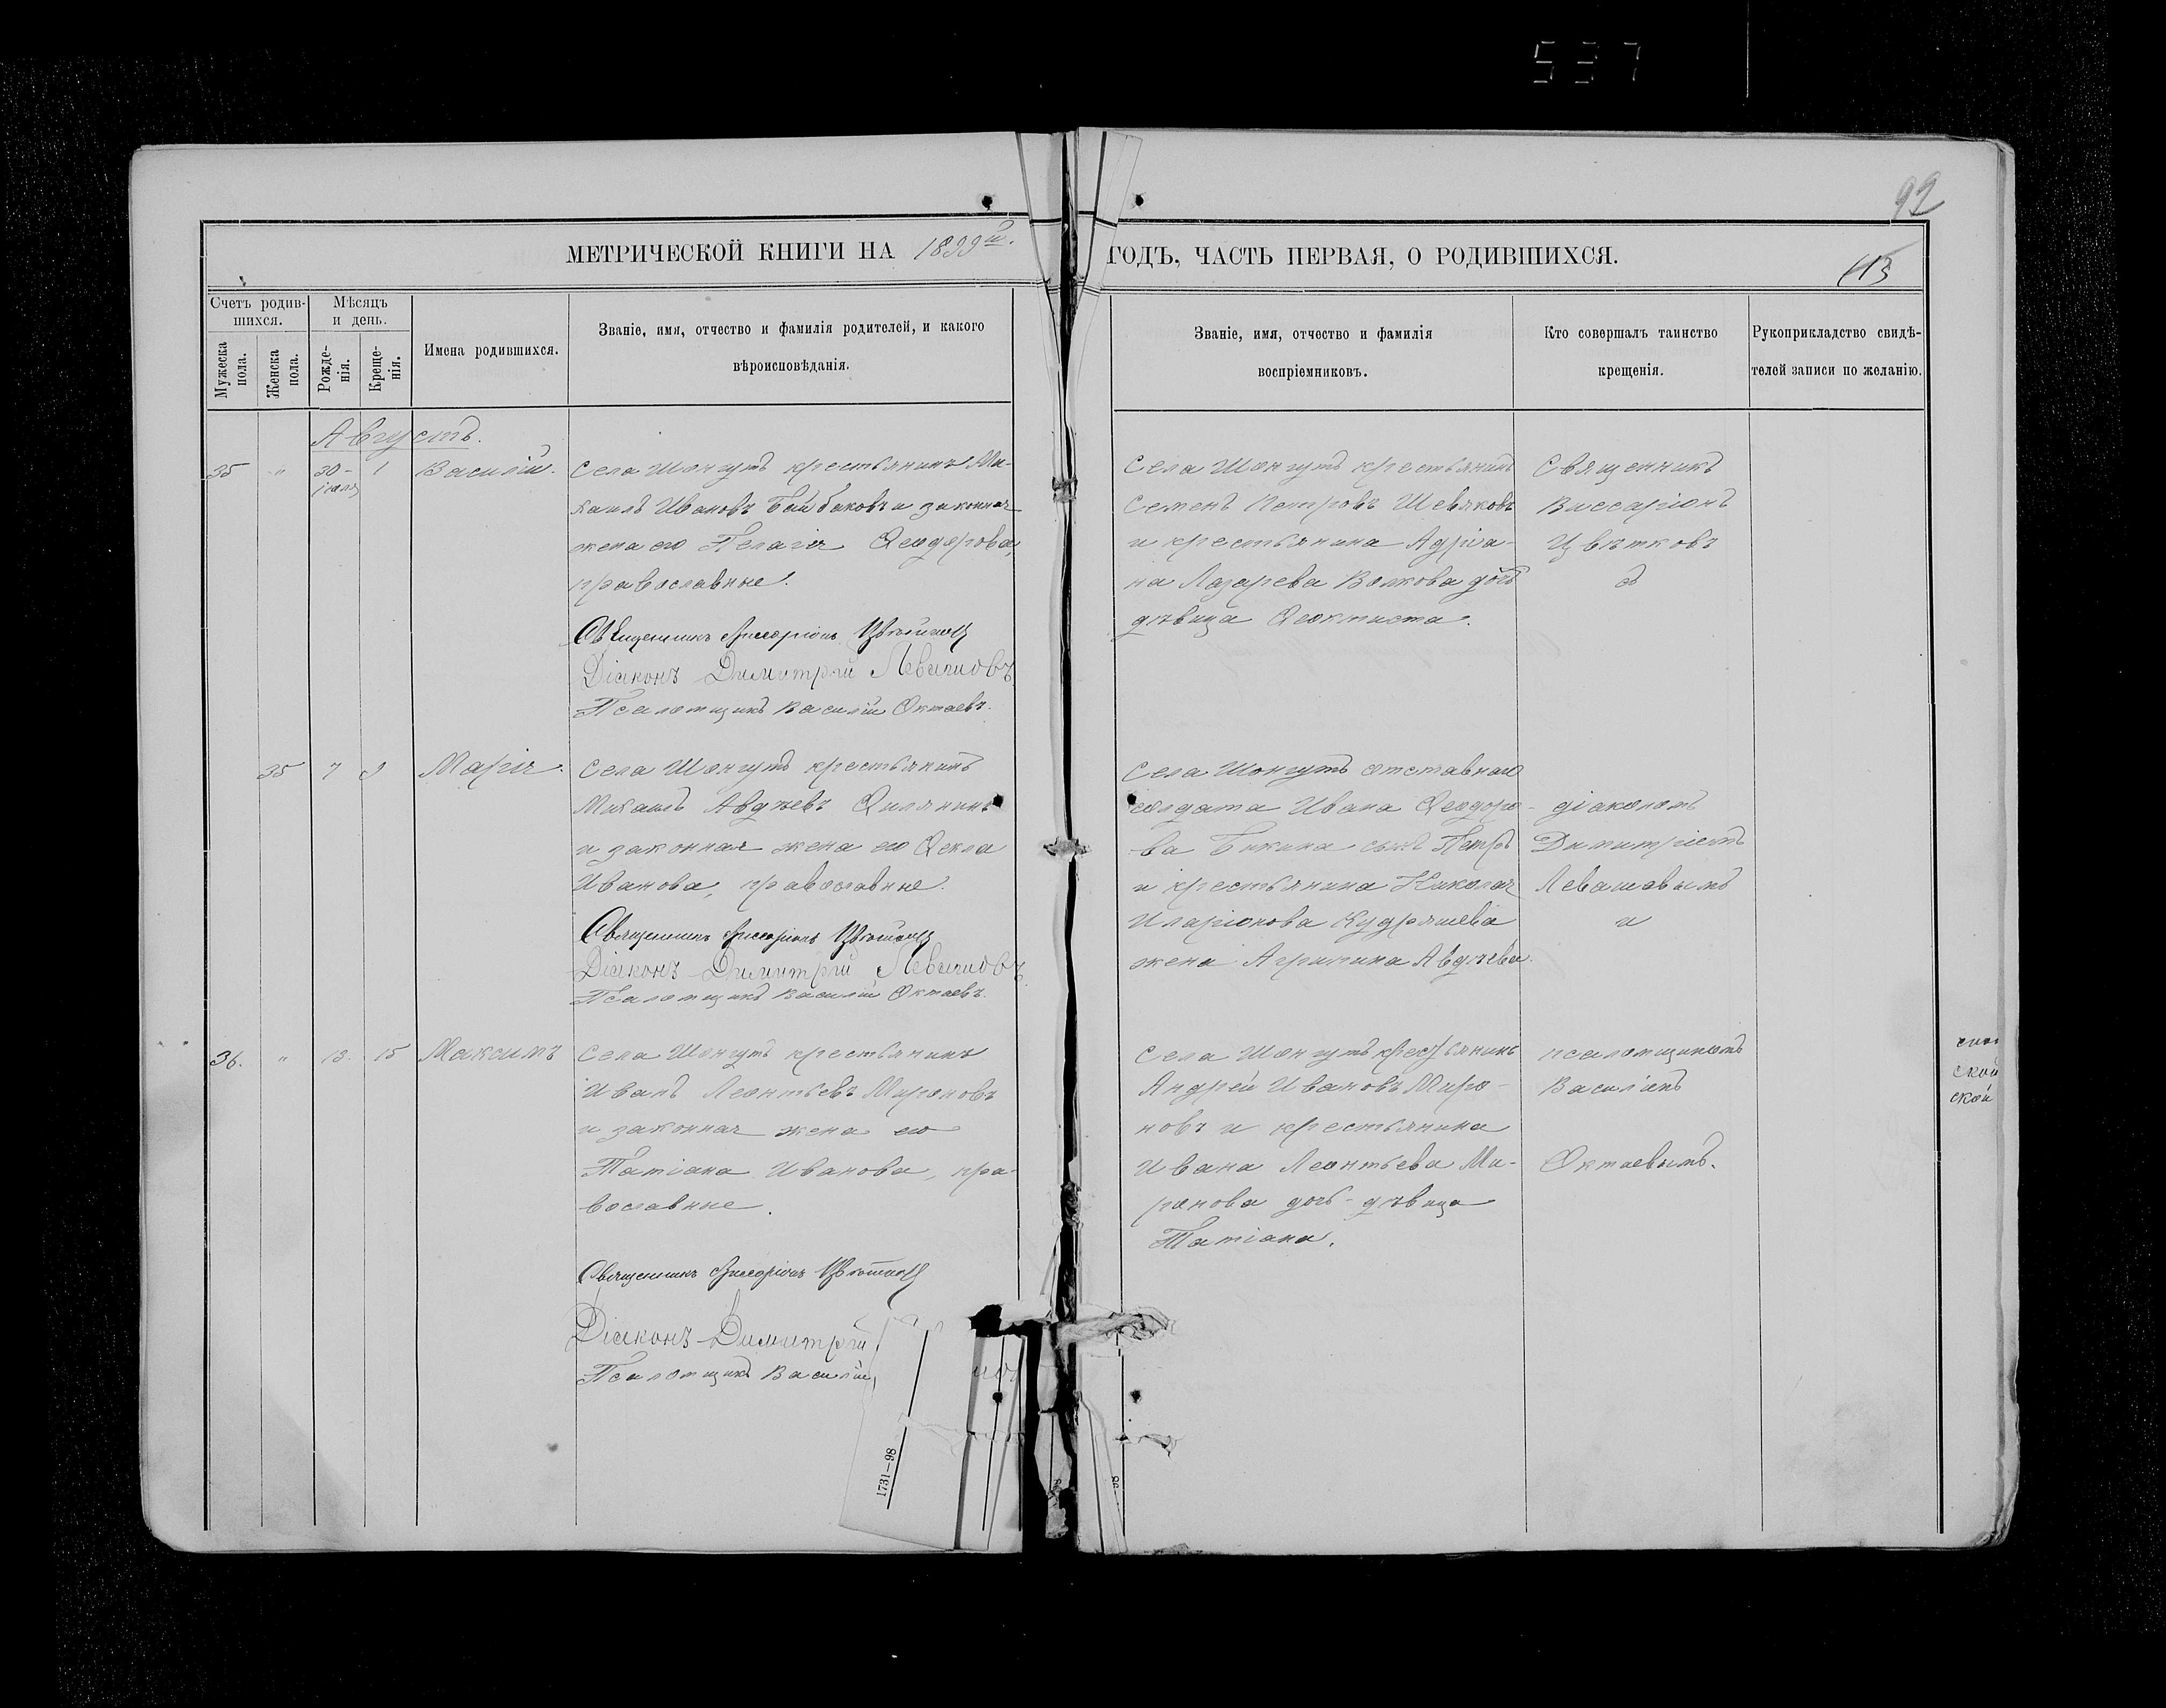 537
92
МЕТРИЧЕСКОЙ КНИГИ НА 1899й.
ГОДЪ, ЧАСТЬ ПЕРВАЯ, О РОДИВШИХСЯ.
113
Счетъ родив-
шихся.
Мужеска
пола.
Женска
пола.
Мѣсяцъ
и день.
Рожде-
нія.
Креще-
нія.
Имена родившихся.
Званіе, имя, отчество и фамилія родителей, и какого
вѣроисповѣданія.
Званіе, имя, отчество и фамилія
воспріемниковъ.
Кто совершалъ таинство
крещенія.
Рукоприкладство свидѣ-
телей записи по желанію.
Августъ.
35 " 30- 1 Василій.
іюля
Села Шонгутъ крестьянинъ Ми-
хаилъ Ивановъ Байбаковъ и законная
жена его Пелагія Ѳеодорова,
православные.
Священникъ Виссаріонъ Цвѣтковъ
Діаконъ Димитрій Левашовъ
Псаломщикъ Василій Октаевъ.
Села Шонгутъ крестьянинъ
Семенъ Петровъ Шевяковъ
и крестьянина Адріа-
на Лазарева Волкова дочь
дѣвица Ѳеоктиста.
Священникъ
Виссаріонъ
Цвѣтковъ
съ
35 7 9 Марія.
Села Шонгутъ крестьянинъ
Михаилъ Авдѣевъ Ѳилянинъ
и законная жена его Ѳекла
Иванова, православные.
Священникъ Виссаріонъ Цвѣтковъ
Діаконъ Димитрій Левашовъ
Псаломщикъ Василій Октаевъ.
Села Шонгутъ отставнаго
солдата Ивана Ѳеодоро-
ва Бикина сынъ Петръ
и крестьянина Николая
Иларіонова Кудряшева
жена Агрипина Авдѣева.
діакономъ
Димитріемъ
Левашовымъ
и
36. " 13. 15 Максимъ
Села Шонгутъ крестьянинъ
Иванъ Леонтьевъ Мироновъ
и законная жена его
Татіана Иванова, пра-
вославные.
Священникъ Виссаріонъ Цвѣтковъ
Діаконъ Димитрій
Псаломщикъ Василій
Села Шонгутъ крестьянинъ
Андрей Ивановъ Миро-
новъ и крестьянина
Ивана Леонтьева Ми-
ронова дочь-дѣвица
Татіана.
псаломщикомъ
Василіемъ
Октаевымъ.
ской
ской
1731—98